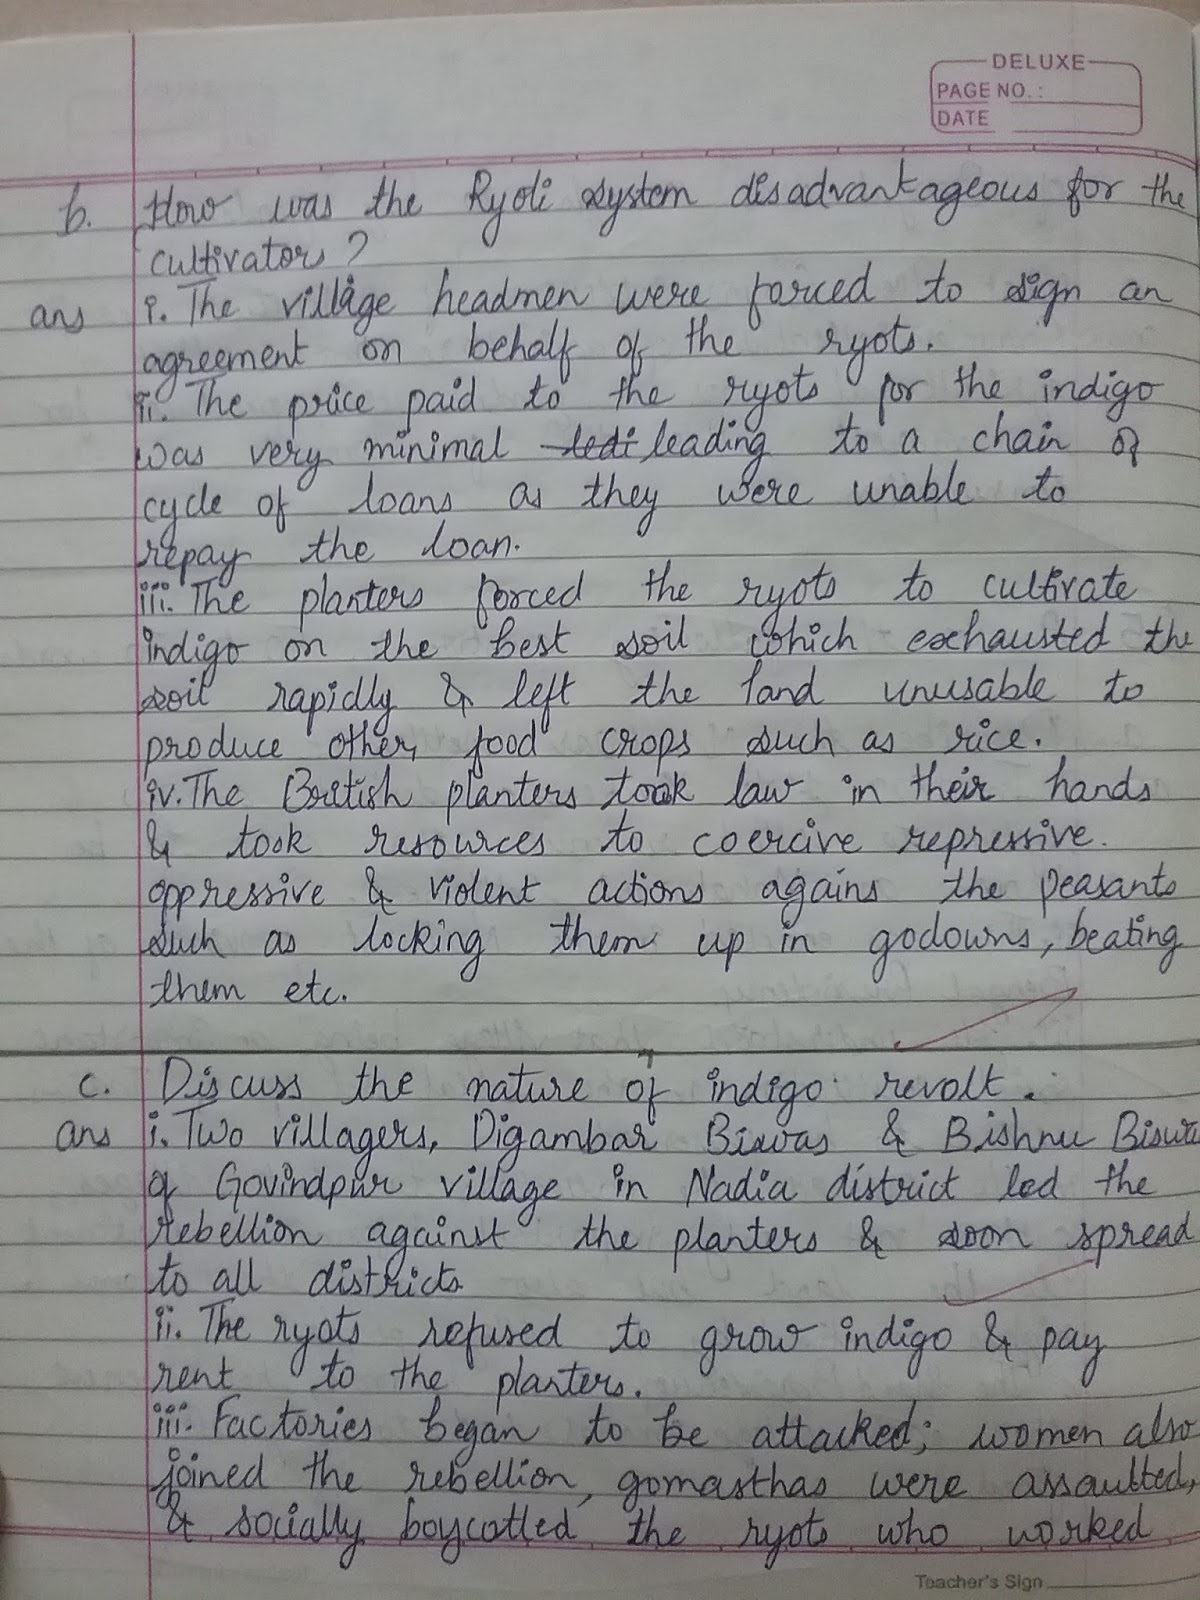 DELUXE
PAGE NO. :
DATE
b. How was the Ryoti system disadvantageous for the
cultivators?
ans i. The village headmen were forced to sign an
agreement on behalf of the ryots.
ii. The price paid to the ryots for the indigo
was very minimal ledi leading to a chain of
cycle of loans as they were unable to
repay the loan.
iii. The planters forced the ryots to cultivate
indigo on the best soil which exhausted the
soil rapidly & left the land unusable to
produce other food crops such as rice.
iv. The British planters took law in their hands
& took resources to coercive repressive.
oppressive & violent actions agains the peasants
such as locking them up in godowns, beating
them etc.
c. Discuss the nature of indigo revolt.
ans i. Two villagers, Digambar Biswas & Bishnu Biswa
of Govindpur village in Nadia district led the
rebellion against the planters & soon spread
to all districts
ii. The ryots refused to grow indigo & pay
rent to the planters.
iii. Factories began to be attacked; women also
joined the rebellion, gomasthas were assaulted,
& socially boycotted the ryots who worked
Teacher's Sign